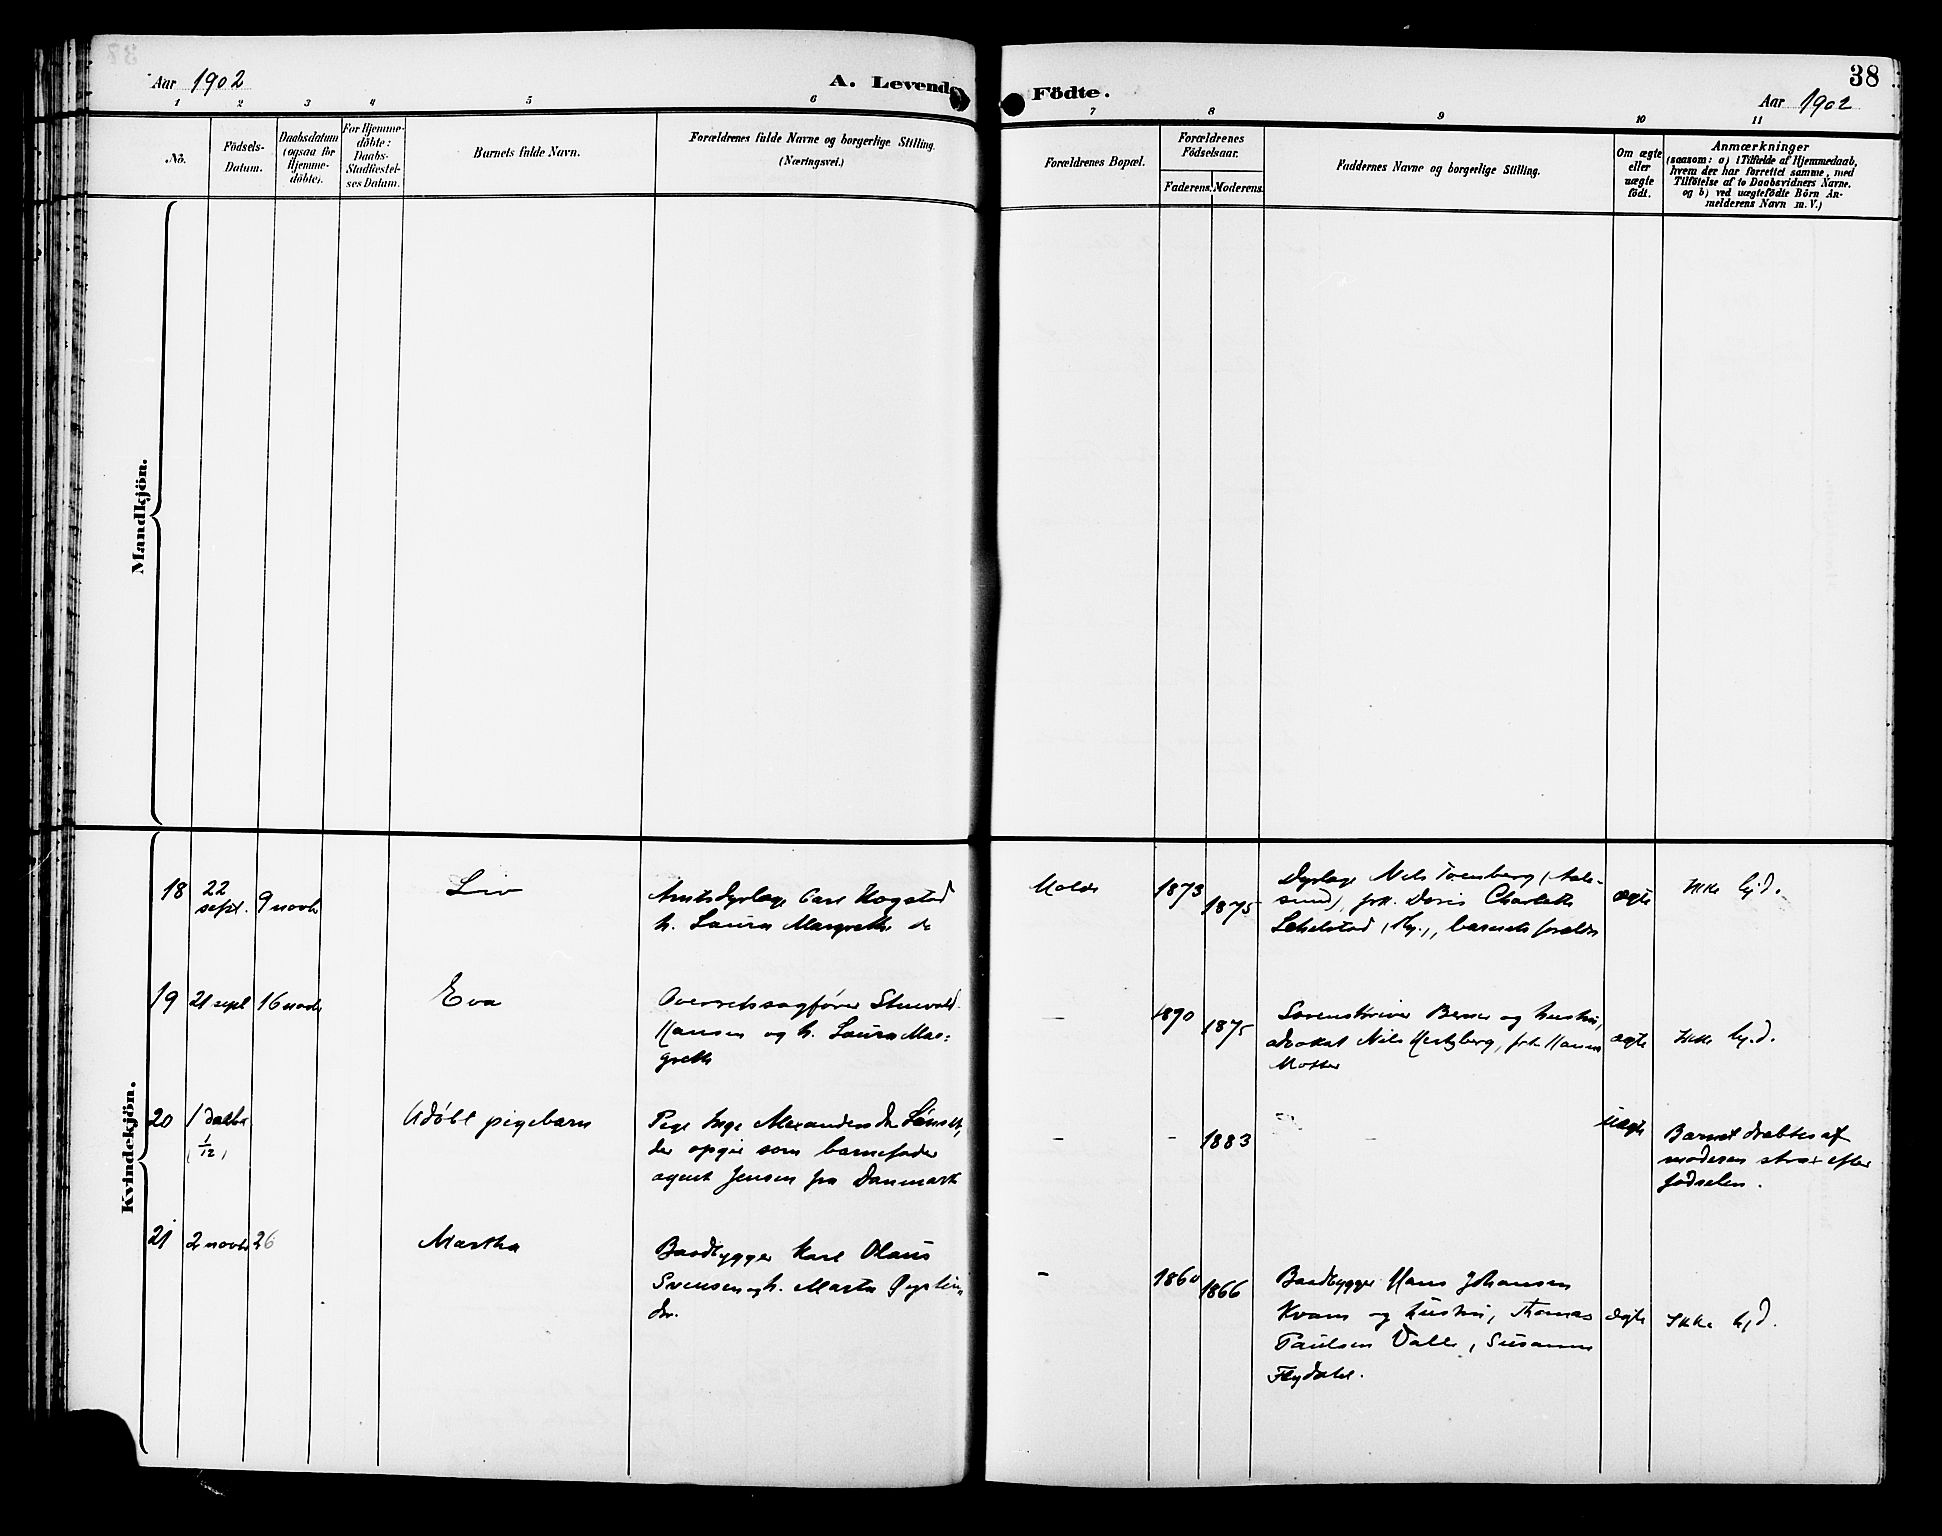 Aar 1902
A. Levende
Födte.
38
Aar 1902
1 2 3 4 5 6 7 8 9 10 11
No.
Födsels-
Datum.
Daabsdatum
(ogsaa for
Hjemme-
döbte).
For Hjemme-
döbte:
Daabs-
Stadfæstel-
ses Datum.
Barnets fulde Navn.
Forældrenes fulde Navne og borgerlige Stilling.
(Næringsvei.)
Forældrenes Bopæl.
Forældrenes
Födselsaar.
Faderens. Moderens.
Faddernes Navne og borgerlige Stilling.
Om ægte
eller
uægte
födt.
Anmærkninger
(saasom: a) i Tilfælde af Hjemmedaab,
hvem der har forrettet samme, med
Tilföielse af to Daabsvidners Navne,
og b) ved uægtefödte Börn An-
melderens Navn m. V.)
Mandkjön.
Kvindekjön.
18
22
sept.
9 novbr
Liv
Amtsdyrlæge Carl Hogstad
h. Laura Margrethe
Molde
1873
1875
Dyrlæge Nels (Aale-
sund), frk. Doris Charlotte
barnets forældre
ægte
Ikke hj.d.
19
21 sept
16 novbr
Eva
Overretssagfører
Hansen og h. Laura Mar-
grethe
-
1870
1875
Sorenskriver og hustru,
advokat Nils Hertzberg, frk. Hanna
ægte
Ikke hj.d.
20
1 decbr
(1/12)
Udøbt pigebarn
Pige Inga Alexandersdr.
der opgir som barnefader
agent Jensen fra Danmark
-
-
1883
-
uægte
Barnet dræbtes af
moderen strax efter
fødselen.
21
2 novbr
26
Martha
Baadbygger Karl Olaus
Svensen og h. Marta
dr.
-
1860
1866
Baadbygger Hans Johansen
Kvam og hustru, Thomas
Paulsen Valle, Susanne
Flydahl.
ægte
Ikke hjd.